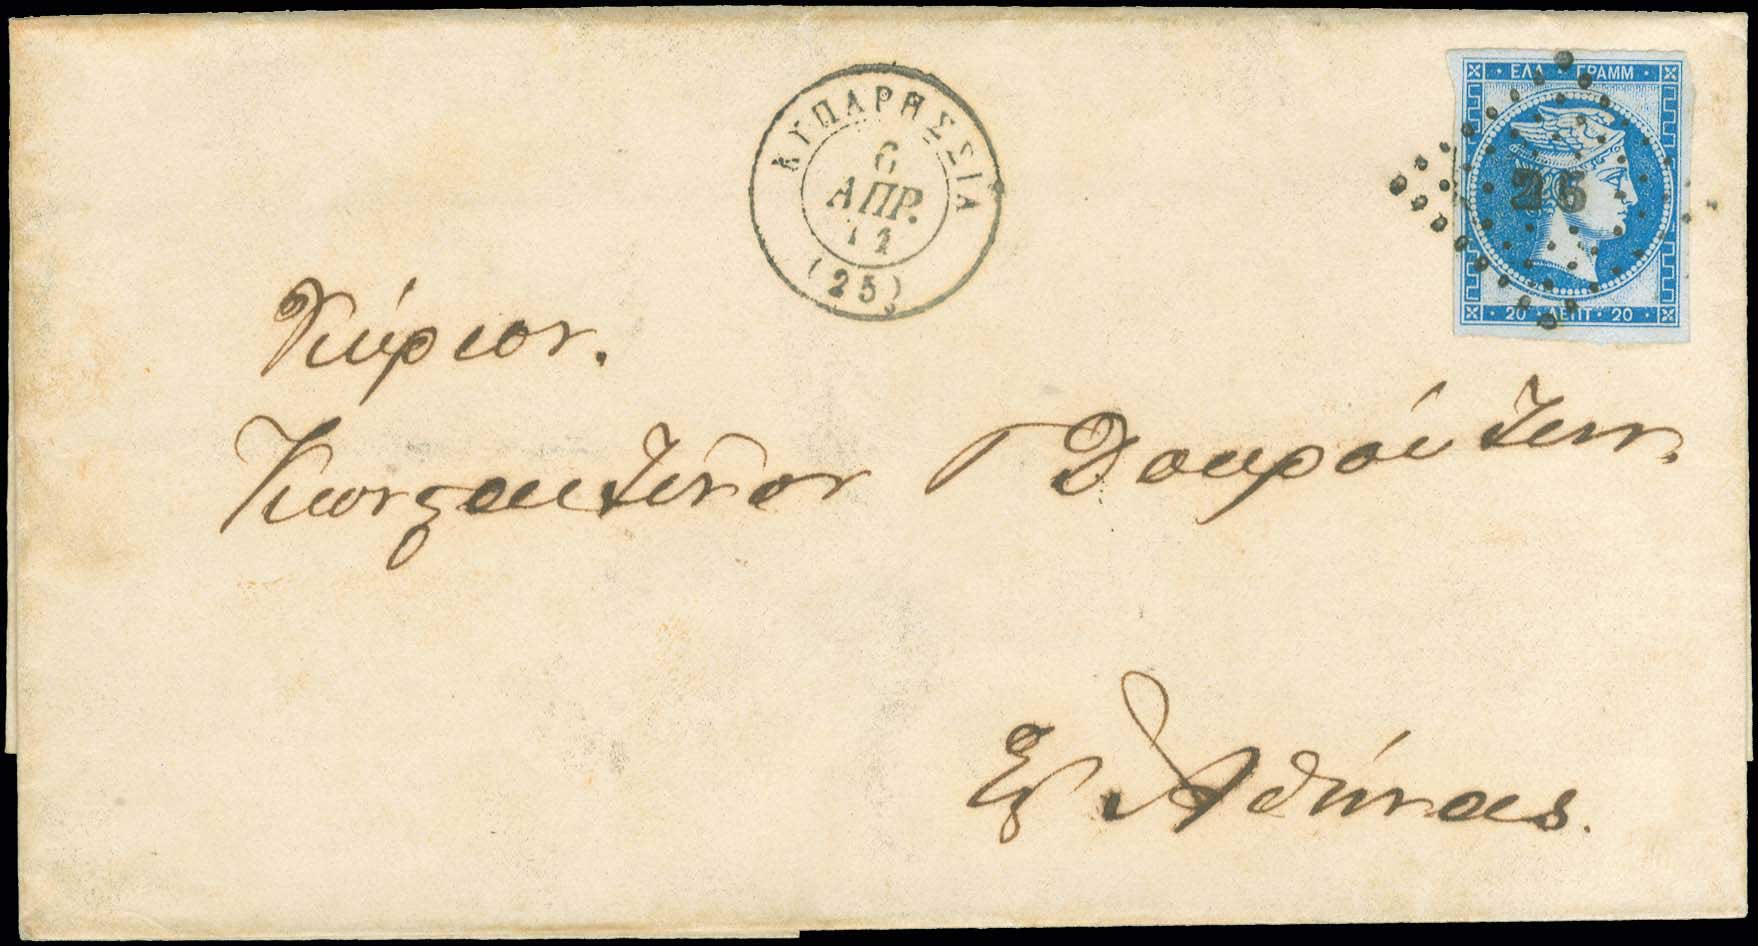 ΚΥΠΑΡΗΣΣΙΑ
6
ΑΠΡ.
(25)
ΕΛΛ · ΓΡΑΜΜ
25
20 · ΛΕΠΤ · 20
Κύριον.
Κωνσταντῖνον
Εἰς Ἀθήνας.